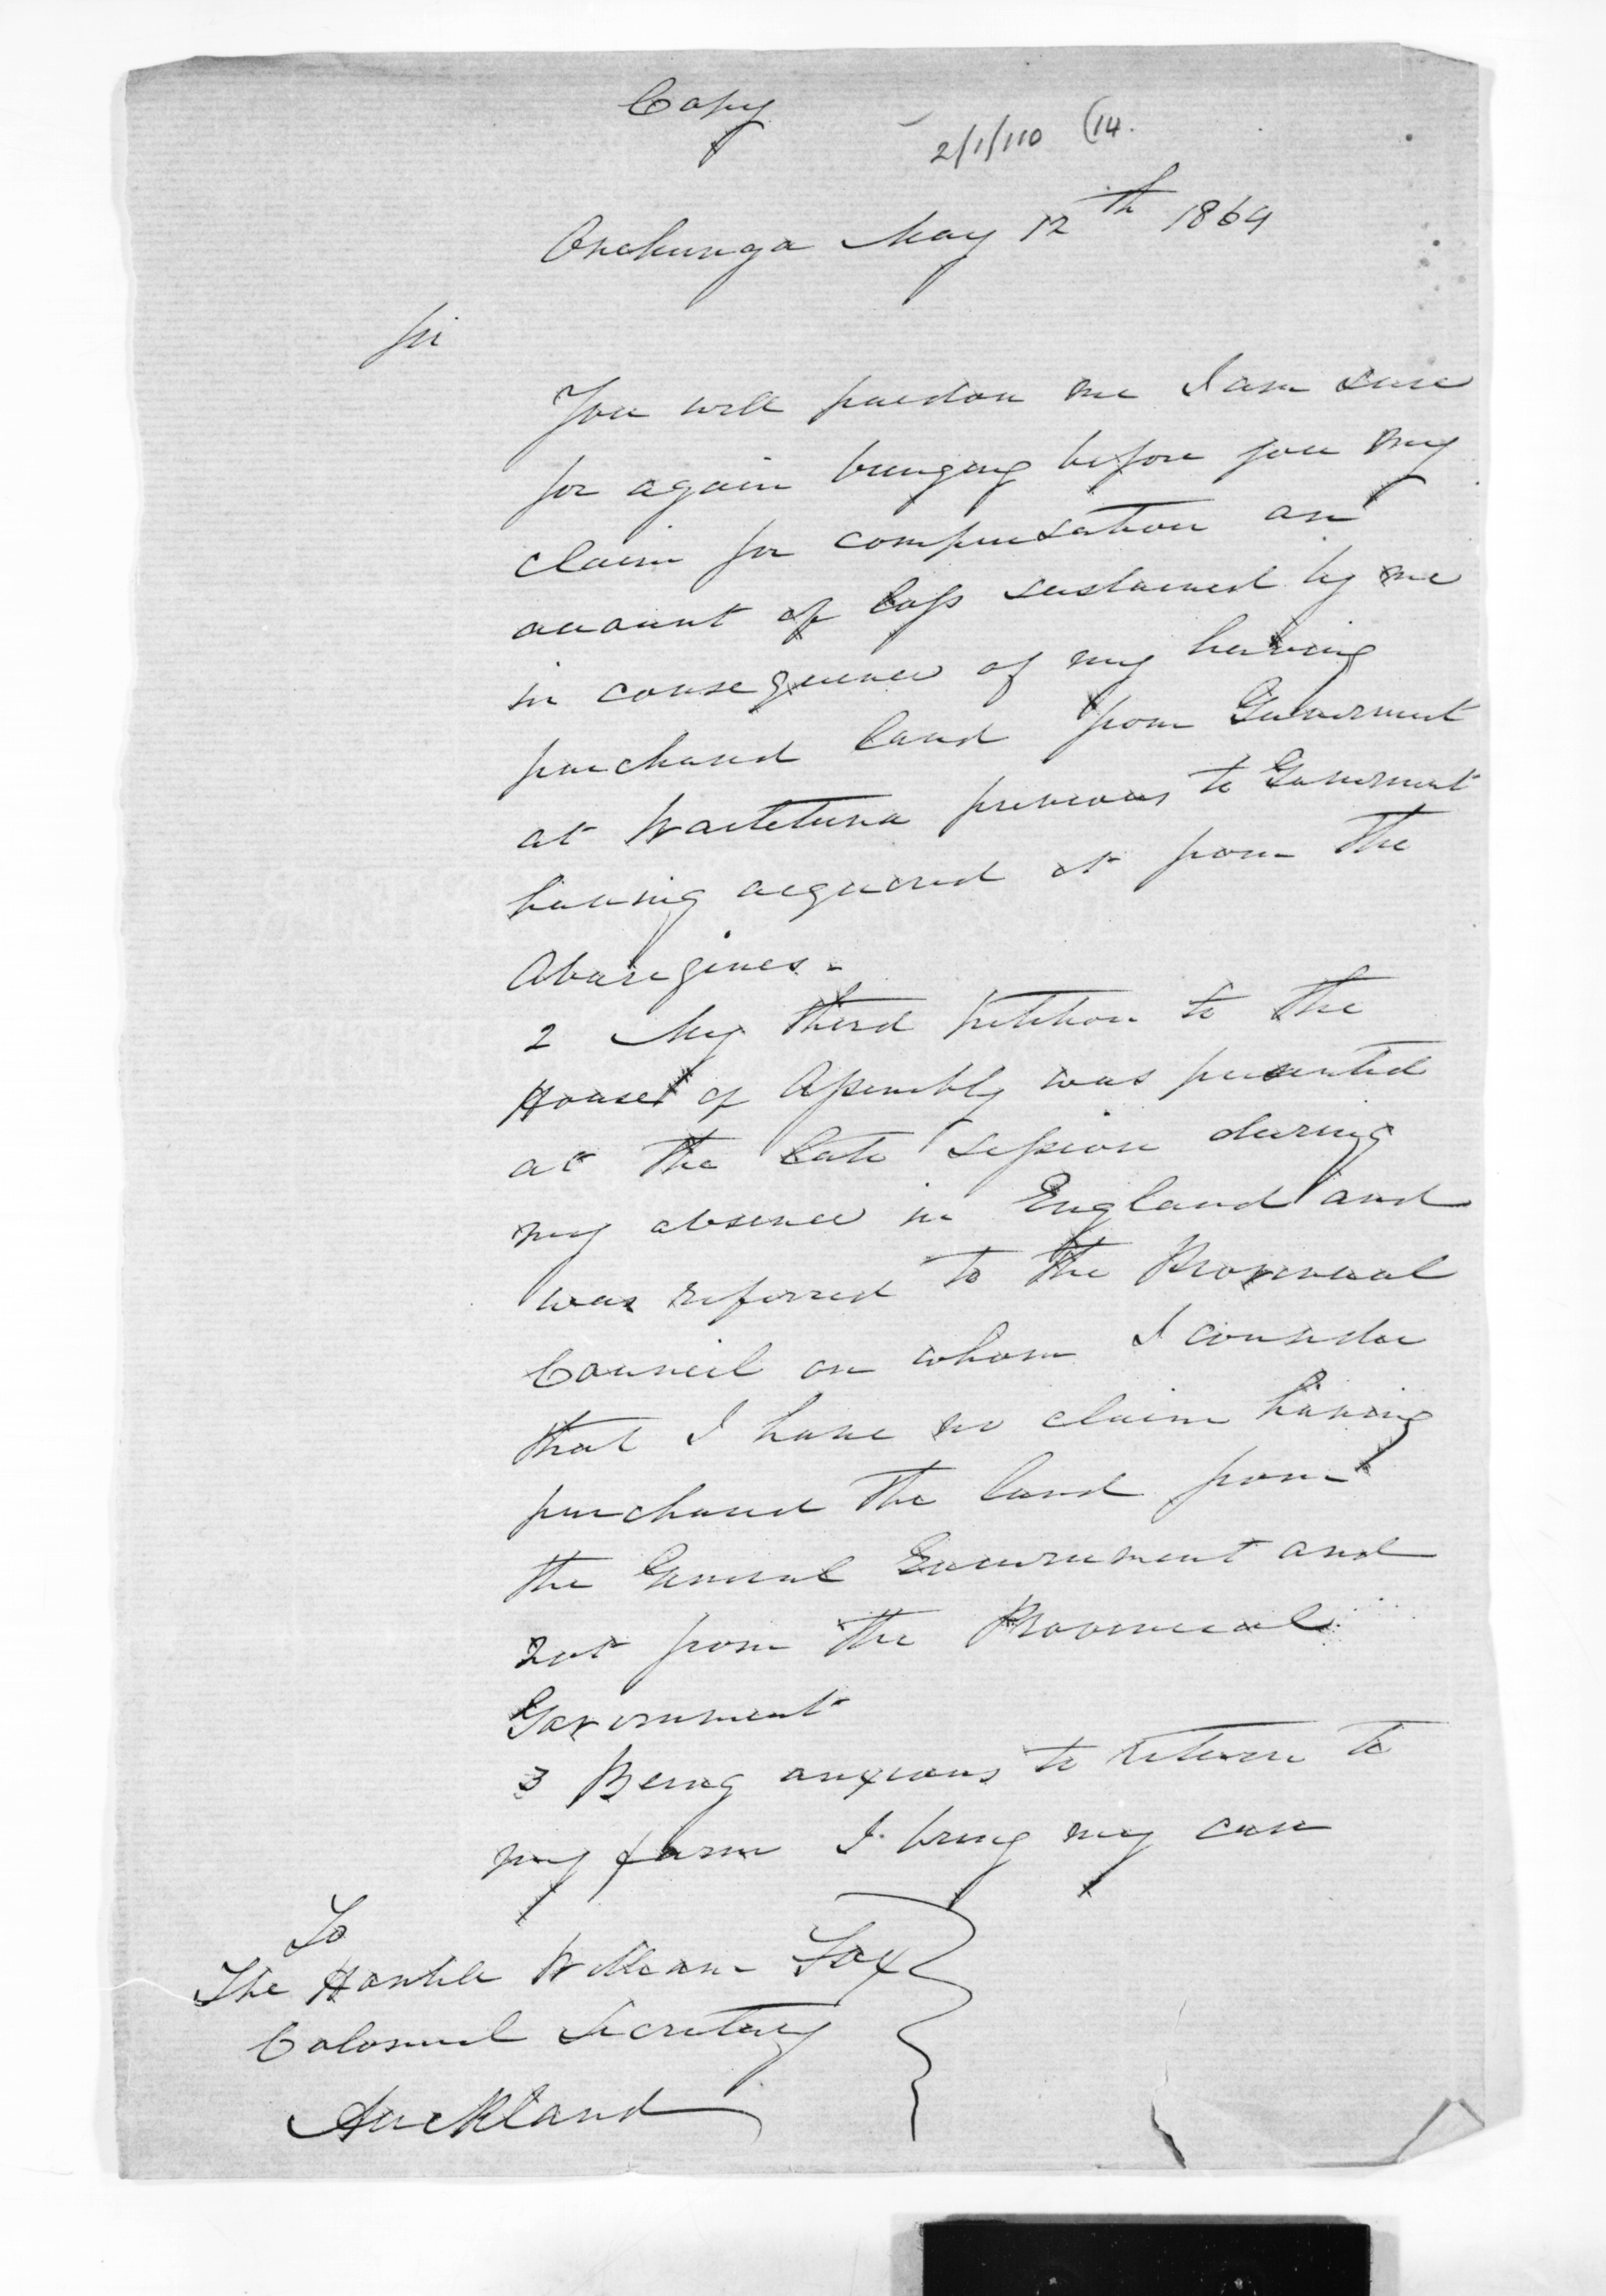 Copy
2/1/110 (14.
Onehunga May 12th 1864
Sir
You will pardon me I am sure
for again bringing before you my
claim for compensation on
account of loss sustained by me
in consequence of my having
purchased land from Government
at Waitetuna previous to Government
having acquired it from the
Aborigines.
2 My third Petition to the
House of Assembly was presented
at the late session during
my absence in England and
was referred to the Provincial
Council on whom I consider
that I have no claim having
purchased the land from
the General Government and
not from the Provincial
Government
3 Being anxious to return to
my farm I bring my case
To
The Honble William Fox
Colonial Secretary
Auckland